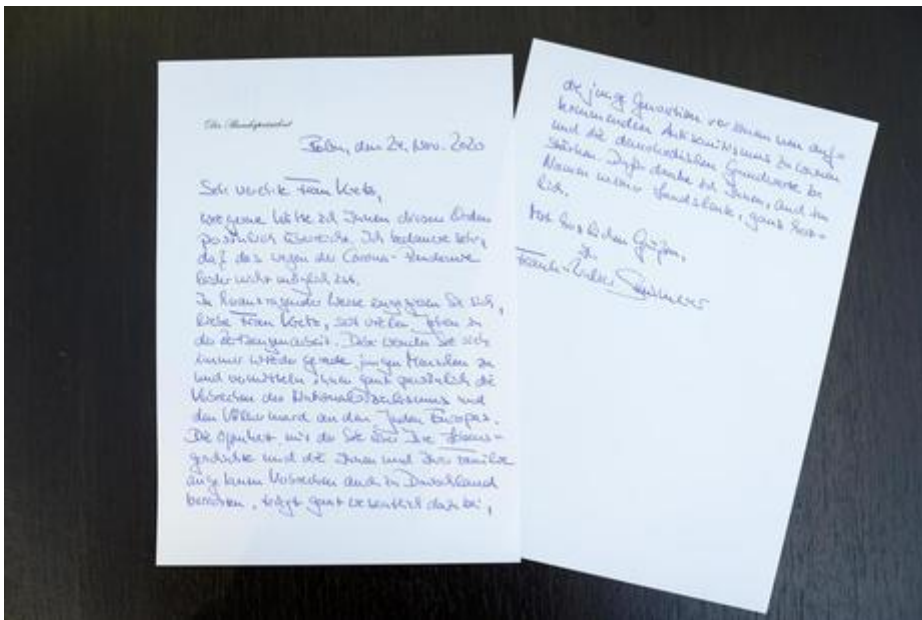 Der Bundespräsident
Berlin, den 24. Nov. 2020
Sehr verehrte Frau
wie gerne hätte ich Ihnen diesen Orden
persönlich überreicht. Ich bedauere sehr,
daß das wegen der Corona-Pandemie
leider nicht möglich ist.
In herausragender Weise engagieren Sie sich,
liebe Frau seit vielen Jahren in
der Zeitzeugenarbeit. Dabei wenden Sie sich
immer wieder gerade jungen Menschen zu
und vermitteln ihnen ganz persönlich die
Verbrechen des Nationalsozialismus und
den Völkermord an den Juden Europas.
Die Offenheit, mit der Sie über Ihre Lebens-
geschichte und die Ihnen und Ihrer Familie
angetanen Verbrechen auch in Deutschland
berichten, trägt ganz wesentlich dazu bei,
die junge Generation vor einem neu auf-
kommenden Antisemitismus zu warnen
und die demokratischen Grundwerte zu
stärken. Dafür danke ich Ihnen, auch im
Namen unserer Landsleute, ganz herz-
lich.
Mit herzlichen Grüßen,
Ihr
Frank-Walter Steinmeier